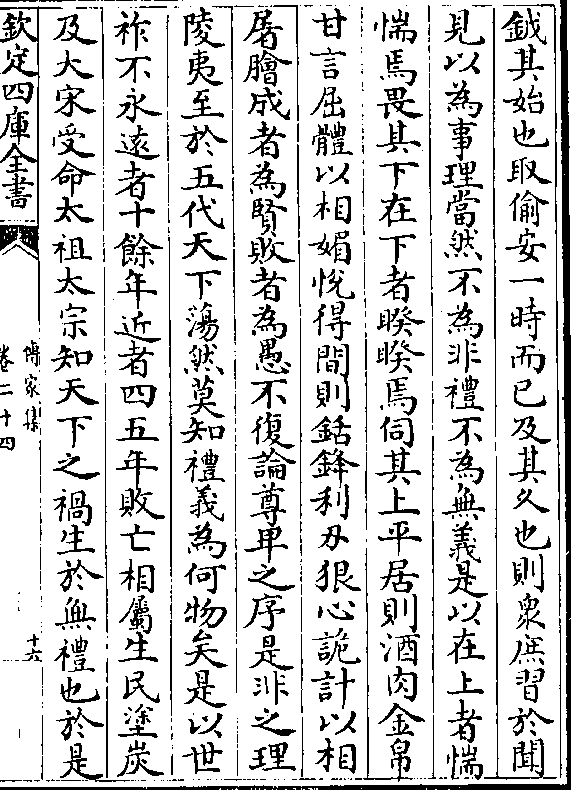 鉞其始也取偷安一時而已及其久也則衆庶習於聞
見以為事理當然不為非禮不為無義是以在上者惴
惴焉畏其下在下者睽睽焉伺其上平居則酒肉金帛
甘言屈體以相媚恱得間則銛鋒利刃狠心詭計以相
屠膾成者為賢敗者為愚不復論尊卑之序是非之理
陵夷至於五代天下蕩然莫知禮義為何物矣是以世
祚不永逺者十餘年近者四五年敗亡相屬生民塗炭
及大宋受命太祖太宗知天下之禍生於無禮也於是
欽定四庫全書
傳家集
卷二十四
十六